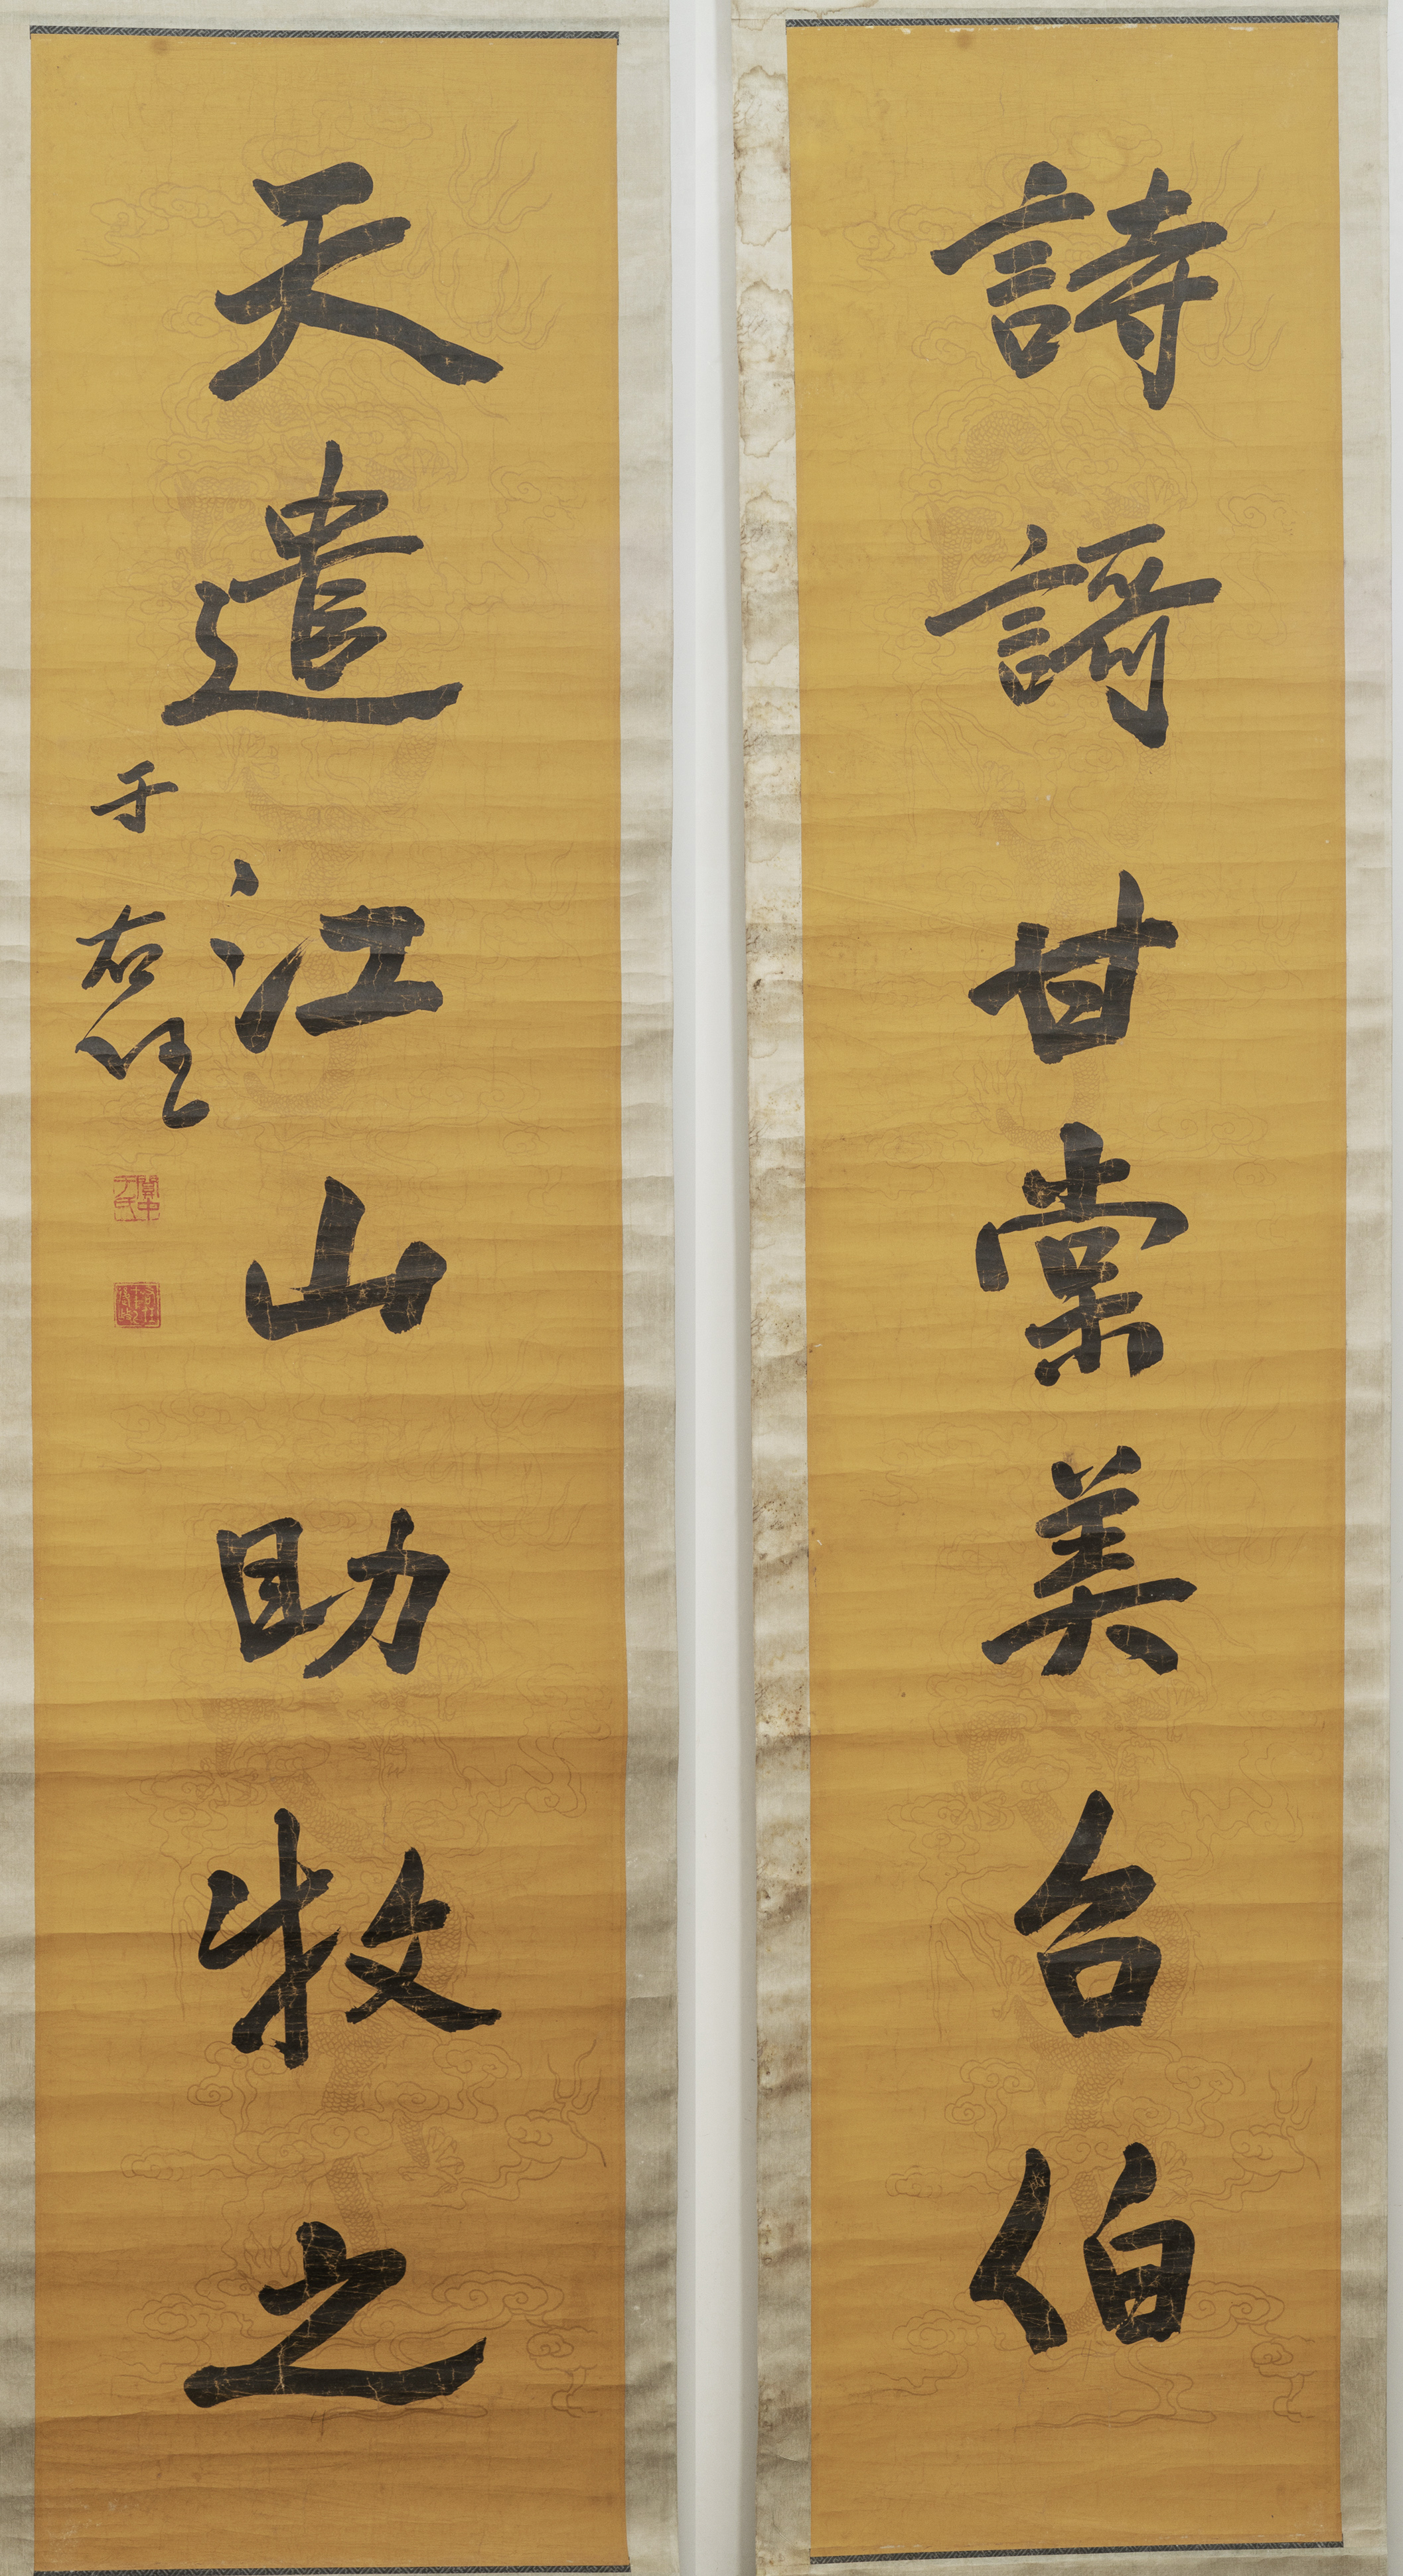 詩謌甘棠美台伯
天遣江山助牧之
于右任
關中于氏